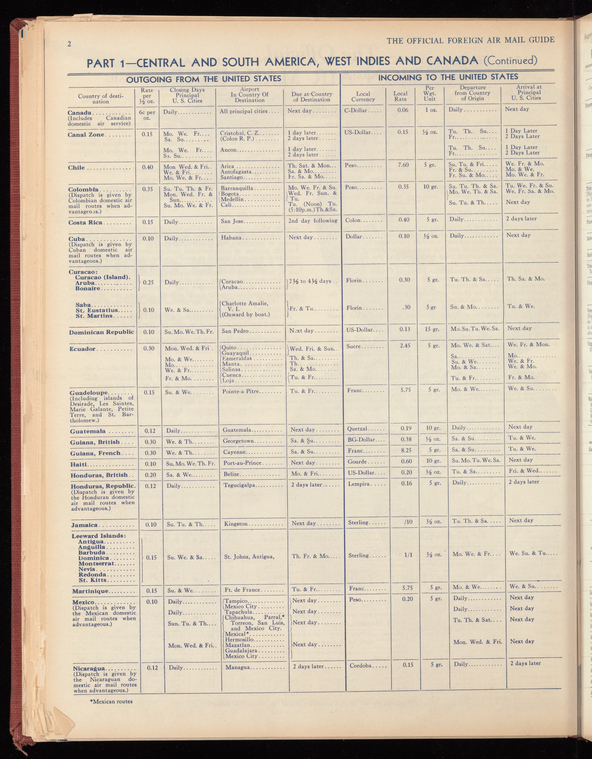 2
THE OFFICIAL FOREIGN AIR MAIL GUIDE
PART 1—CENTRAL AND SOUTH AMERICA, WEST INDIES AND CANADA (Continued)
OUTGOING FROM THE UNITED STATES
INCOMING TO THE UNITED STATES
Country of desti-nation | Rate per ½ oz. | Closing Days Principal U. S. Cities | Airport In Country Of Destination | Due at Country of Destination | Local Currency | Local Rate | Per Wgt. Unit | Departure from Country of Origin | Arrival at Principal U. S. Cities
Canada (Includes Canadian domestic air service) | 6c per oz. | Daily | All principal cities | Next day | C-Dollar | 0.06 | 1 oz. | Daily | Next day
Canal Zone | 0.15 | Mo. We. Fr. | Cristobal, C. Z. (Colon R. P.) | 1 day later | US-Dollar | 0.15 | ½ oz. | Tu. Th. Su. | 1 Day Later
Sa. Su. | 2 days later | Fr. | 2 Days Later
Mo. We. Fr. | Ancon | 1 day later | Tu. Th. Sa. | 1 Day Later
Sa. Su. | 2 days later | Fr. | 2 Days Later
Chile | 0.40 | Mon. Wed. & Fri. | Arica | Th. Sat. & Mon. | Peso | 7.60 | 5 gr. | Su. Tu. & Fri. | We. Fr. & Mo.
We. & Fri. | Antofagasta | Sa. & Mo. | Fr. & Su. | Mo. & We.
Mo. We. & Fr. | Santiago | Fr. Sa. & Mo. | Fr. Su. & Mo. | Mo. We. & Fr.
Colombia (Dispatch is given by Colombian domestic air mail routes when ad-vantageous.) | 0.35 | Su. Tu. Th. & Fr. | Barranquilla | Mo. We. Fr. & Su. | Peso | 0.35 | 10 gr. | Sa. Tu. Th. & Sa. | Tu. We. Fr. & Su.
Mon. Wed. Fr. & Sun. | Bogota | Wed. Fr. Sun. & Tu. | Mo. We. Th. & Sa. | We. Fr. Sa. & Mo.
Medellin
Su. Mo. We. & Fr. | Cali | Tu. (Noon) Tu. (5:10p.m.) Th. & Sa. | Su. Tu. & Th. | Next day
Costa Rica | 0.15 | Daily | San Jose | 2nd day following | Colon | 0.40 | 5 gr. | Daily | 2 days later
Cuba (Dispatch is given by Cuban domestic air mail routes when ad-vantageous.) | 0.10 | Daily | Habana | Next day | Dollar | 0.10 | ½ oz. | Daily | Next day
Curacao:
Curacao (Island).
Aruba
Bonaire | 0.25 | Daily | Curacao Aruba | 2½ to 4½ days | Florin | 0.30 | 5 gr. | Tu. Th. & Sa. | Th. Sa. & Mo.
Saba
St. Eustatius
St. Martins | 0.10 | We. & Sa. | Charlotte Amalie, V. I. (Onward by boat.) | Fr. & Tu. | Florin | .30 | 5 gr | Su. & Mo. | Tu. & We.
Dominican Republic | 0.10 | Su. Mo. We. Th. Fr. | San Pedro | Next day | US-Dollar | 0.13 | 15 gr. | Mo. Sa. Tu. We. Sa. | Next day
Ecuador | 0.30 | Mon. Wed. & Fri | Quito Guayaquil | Wed. Fri. & Sun. | Sucre | 2.45 | 5 gr. | Mo. We. & Sat. | We. Fr. & Mon.
Mo. & We. | Esmeraldas | Th. & Sa. | Sa. | Mo.
Mo. | Manta | Th. | Su. & We. | We. & Fr.
We. & Fr. | Salinas | Sa. & Mo. | Mo. & Sa. | Mo. & We.
Fr. & Mo. | Cuenca Loja | Tu. & Fr. | Tu. & Fr. | Fr. & Mo.
Guadeloupe (Including islands of Desirade, Les Saintes, Marie Galante, Petite Terre, and St. Bar-tholomew.) | 0.15 | Su. & We. | Pointe-a Pitre | Tu. & Fr. | Franc | 5.75 | 5 gr. | Mo. & We. | We. & Su.
Guatemala | 0.12 | Daily | Guatemala | Next day | Quetzal | 0.19 | 10 gr. | Daily | Next day
Guiana, British | 0.30 | We. & Th. | Georgetown | Sa. & Su. | BG-Dollar | 0.38 | ½ oz. | Sa. & Su. | Tu. & We.
Guiana, French | 0.30 | We. & Th. | Cayenne | Sa. & Su. | Franc | 8.25 | 5 gr. | Sa. & Su. | Tu. & We.
Haiti | 0.10 | Su. Mo. We. Th. Fr. | Port-au-Prince | Next day | Gourde | 0.60 | 10 gr. | Su. Mo. Tu. We. Sa. | Next day
Honduras, British | 0.20 | Sa. & We. | Belize | Mo. & Fri. | US-Dollar | 0.20 | ½ oz. | Tu. & Sa. | Fri. & Wed.
Honduras, Republic. (Dispatch is given by the Honduran domestic air mail routes when advantageous.) | 0.12 | Daily | Tegucigalpa | 2 days later | Lempira | 0.16 | 5 gr. | Daily | 2 days later
Jamaica | 0.10 | Su. Tu. & Th. | Kingston | Next day | Sterling | /10 | ½ oz. | Tu. Th. & Sa. | Next day
Leeward Islands:
Antigua
Anguilla
Barbuda
Dominica | 0.15 | Su. We. & Sa. | St. Johns, Antigua, | Th. Fr. & Mo. | Sterling | 1/1 | ½ oz. | Mo. We. & Fr. | We. Su. & Tu.
Montserrat
Nevis
Redonda
St. Kitts
Martinique | 0.15 | Su. & We. | Ft. de France | Tu. & Fr. | Franc | 5.75 | 5 gr. | Mo. & We. | We. & Su.
Mexico (Dispatch is given by the Mexican domestic air mail routes when advantageous.) | 0.10 | Daily | Tampico Mexico City | Next day | Peso | 0.20 | 5 gr. | Daily | Next day
Daily | Tapachula | Next day | Daily | Next day
Sun. Tu. & Th. | Chihuahua, Parral,* Torreon, San Luis, and Mexico City. | Next day | Tu. Th. & Sat. | Next day
Mexicali*
Hermosillo
Mon. Wed. & Fri. | Mazatlan | Next day | Mon. Wed. & Fri. | Next day
Guadalajara
Mexico City
Nicaragua (Dispatch is given by the Nicaraguan do-mestic air mail routes when advantageous.) | 0.12 | Daily | Managua | 2 days later | Cordoba | 0.15 | 5 gr. | Daily | 2 days later
*Mexican routes